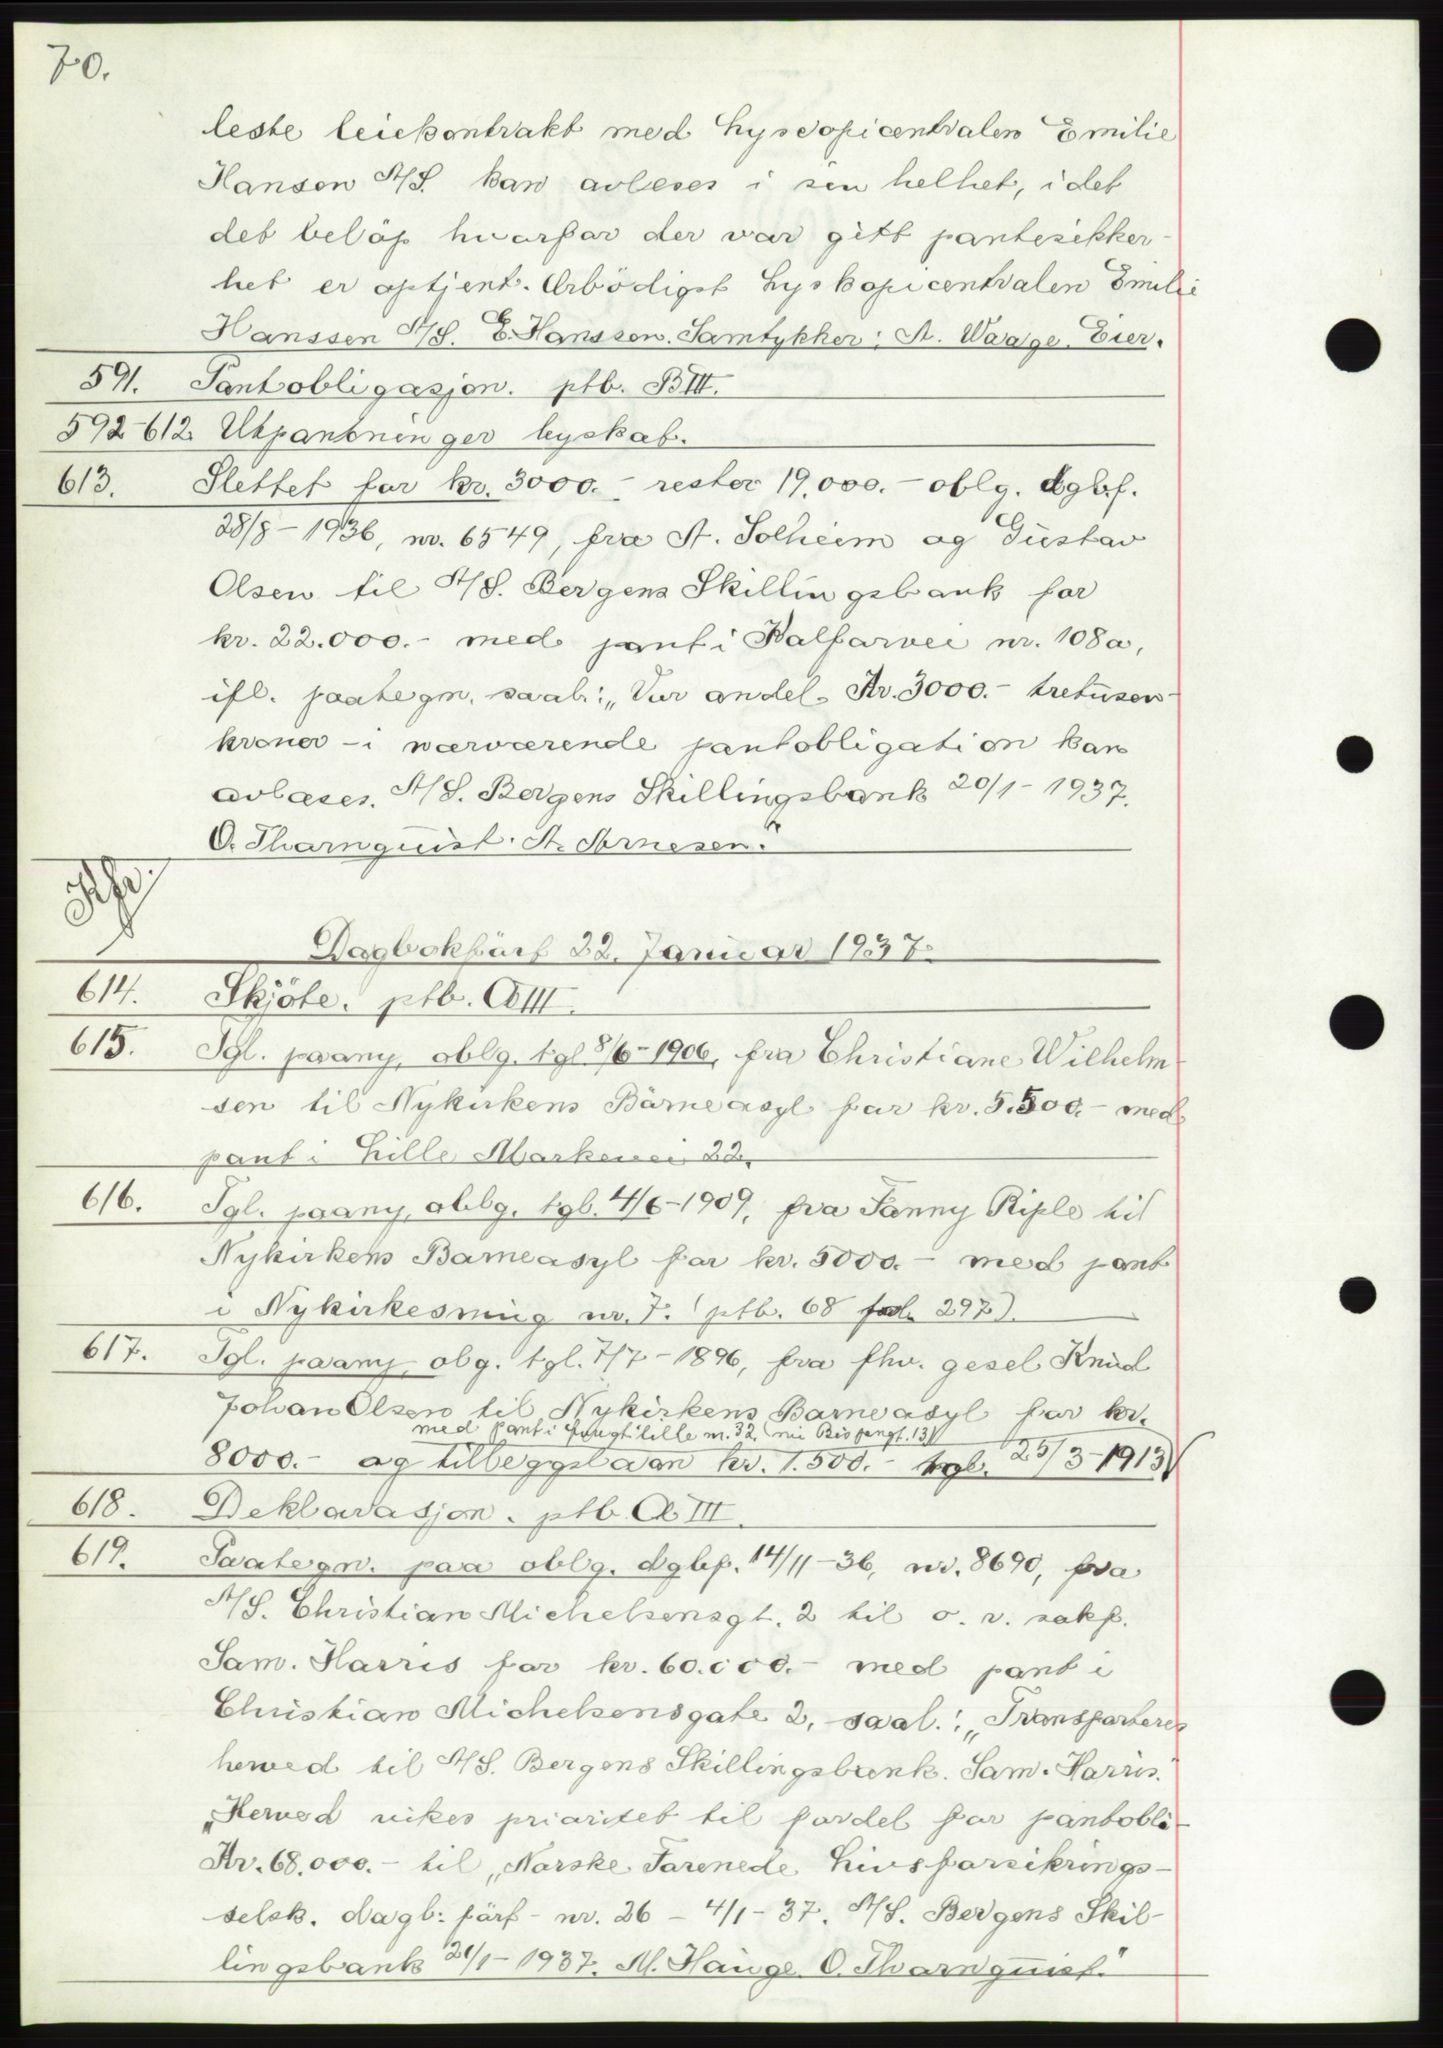 70.
leste leiekontrakt med Lyskopicentralen Emilie
Hanson A/S. kan avleses i sin helhet, i det
det beløp hvorfor der var gitt pantesikker-
het er optjent. Ærbödigst Lyskopicentralen Emilie
Hanssen A/S. E. Hanssen. Samtykker: A. Waage. Eier.
591. Pantobligasjon. ptb. B III.
592-612. Utpantninger byskat.
613. Slettet for kr. 3000.- rester 19.000.- oblg. dgbf.
28/8-1936, nr. 6549, fra A. Solheim og Gustav
Olsen til A/S. Bergens Skillingsbank for
kr. 22.000.- med pant i Kalfarvei nr. 108a,
ifl. paategn. saal.: „Vor andel Kr. 3000.- tretusen
kroner - i nærværende pantobligation kan
avlæses. A/S. Bergens Skillingsbank 20/1-1937.
O. Thornquist. A. Arnesen."
Dagbokført 22. Januar 1937.
614. Skjöte. ptb. A III.
615. Tgl. paany, oblg. tgl. 8/6-1906, fra Christiane Wilhelm
sen til Nykirkens Barneasyl for kr. 5.500.- med
pant i Lille Markevei 22.
616. Tgl. paany, oblg. tgl. 4/6-1909, fra Fanny Riple til
Nykirkens Barneasyl for kr. 5000.- med pant
i Nykirkesmug nr. 7. (ptb. 68 fol. 297).
617. Tgl. paany, obg. tgl. 7/7-1896, fra fhv. gesel Knud
Johan Olsen til Nykirkens Barneasyl for kr.
med pant i nr. 32, nu 13
8000.- og tilleggslaan kr. 1.500.- tgl. 25/3-1913
618. Deklarasjon. ptb. A III.
619. Paategn. paa oblg. dgbf. 14/11-36, nr. 8690, fra
A/S. Christian Michelsensgt. 2 til o. r. sakf.
Sam. Harris for kr. 60.000.- med pant i
Christian Michelsensgate 2, saal.: „Transporteres
herved til A/S. Bergens Skillingsbank. Sam. Harris."
„Herved vikes prioritet til fordel for pantobli-
Kr. 68.000.- til „Norske Forenede Livsforsikrings-
selsk. dagb: förf - nr. 26 - 4/1-37. A/S. Bergens Skil-
lingsbank 21/1-1937. M. Hauge. O. Thornquist."